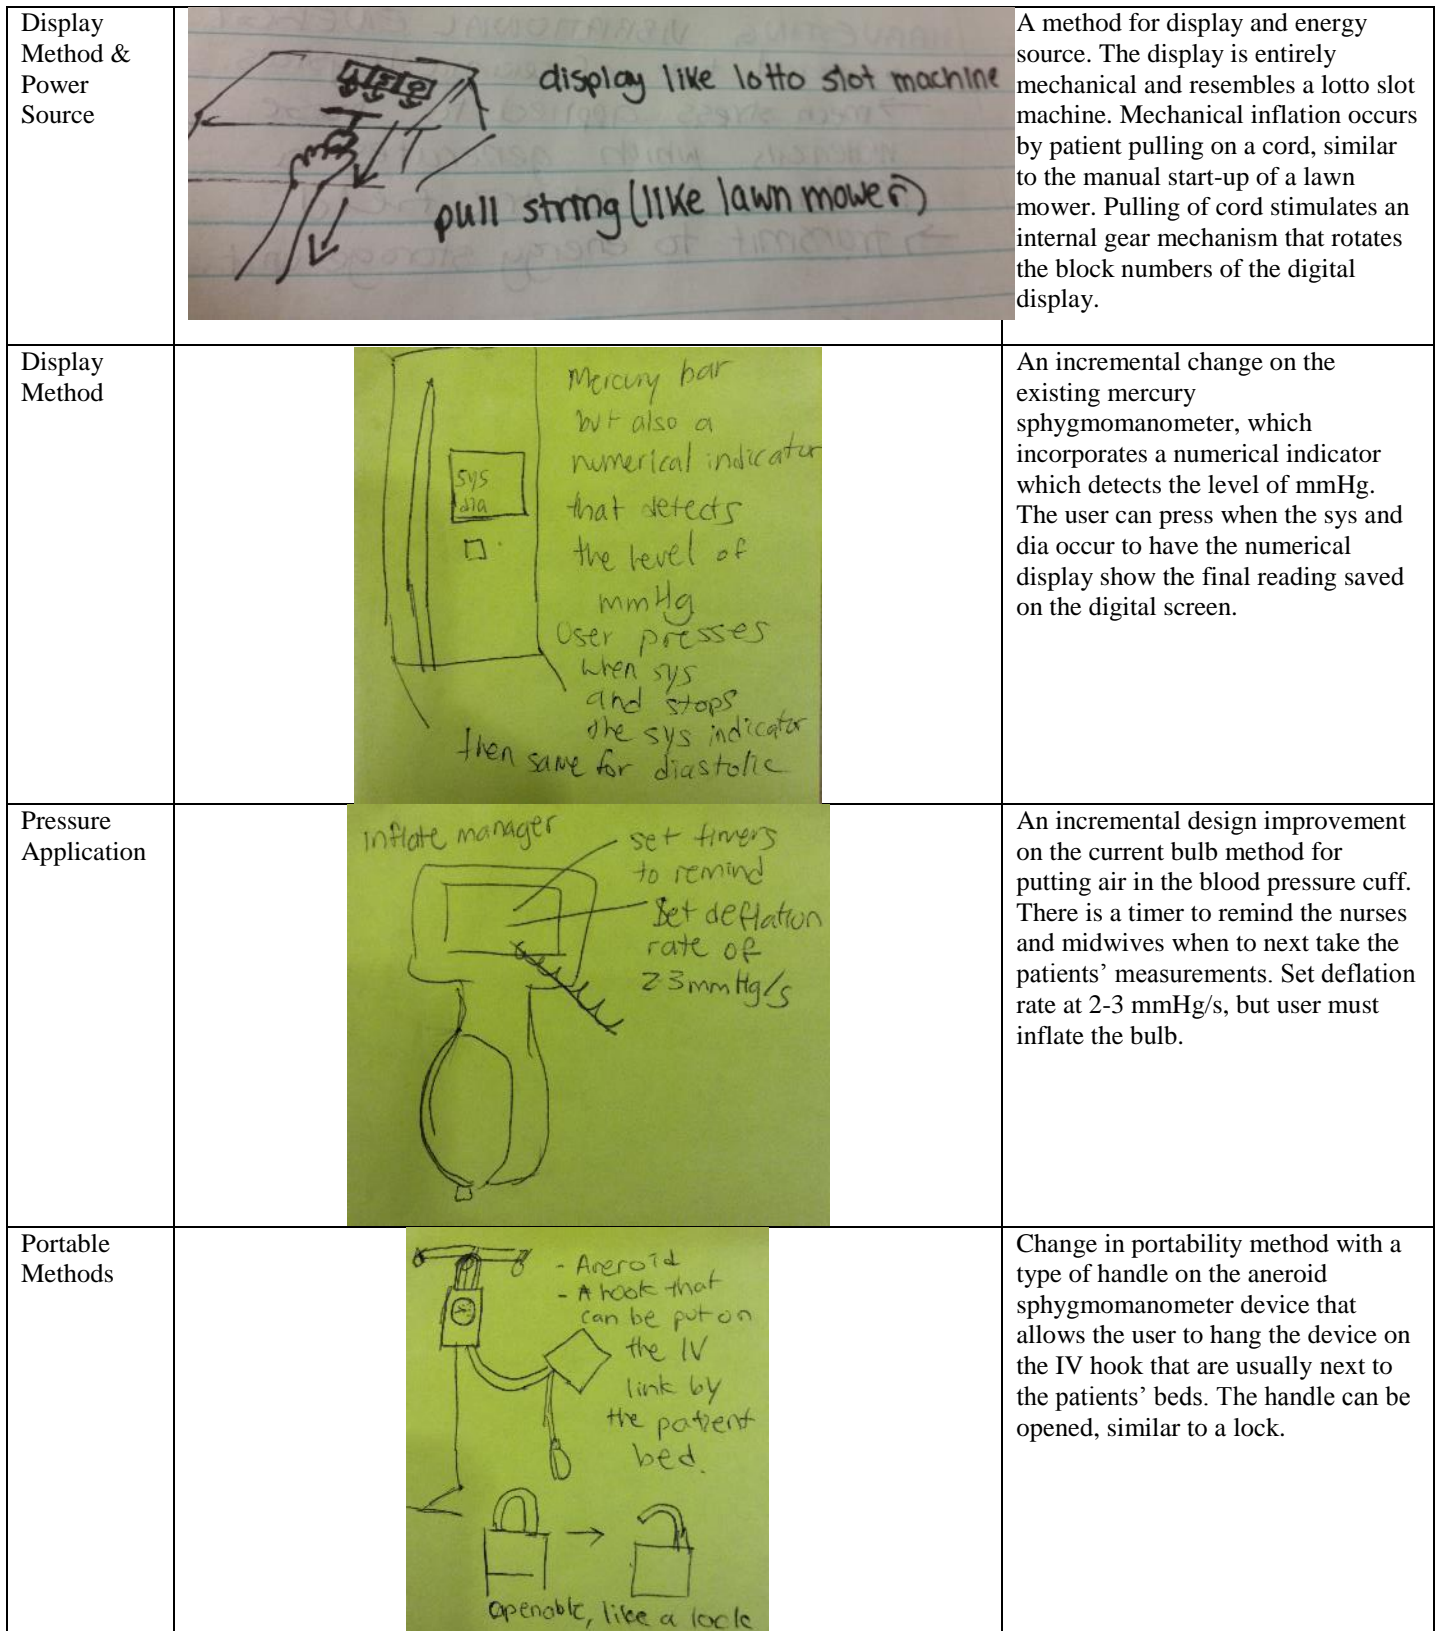 Display
Method &
Power
Source
display like lotto slot machine
pull string (like lawn mower)
A method for display and energy
source. The display is entirely
mechanical and resembles a lotto slot
machine. Mechanical inflation occurs
by patient pulling on a cord, similar
to the manual start-up of a lawn
mower. Pulling of cord stimulates an
internal gear mechanism that rotates
the block numbers of the digital
display.
Display
Method
sys
dia
Mercury bar
but also a
numerical indicator
that detects
the level of
mmHg
User presses
when sys
and stops
the sys indicator
then same for diastolic
An incremental change on the
existing mercury
sphygmomanometer, which
incorporates a numerical indicator
which detects the level of mmHg.
The user can press when the sys and
dia occur to have the numerical
display show the final reading saved
on the digital screen.
Pressure
Application
inflate manager
set timers
to remind
Set deflation
rate of
2-3 mmHg/s
An incremental design improvement
on the current bulb method for
putting air in the blood pressure cuff.
There is a timer to remind the nurses
and midwives when to next take the
patients’ measurements. Set deflation
rate at 2-3 mmHg/s, but user must
inflate the bulb.
Portable
Methods
- Aneroid
- A hook that
can be put on
the IV
link by
the patient
bed.
openable, like a lock
Change in portability method with a
type of handle on the aneroid
sphygmomanometer device that
allows the user to hang the device on
the IV hook that are usually next to
the patients’ beds. The handle can be
opened, similar to a lock.